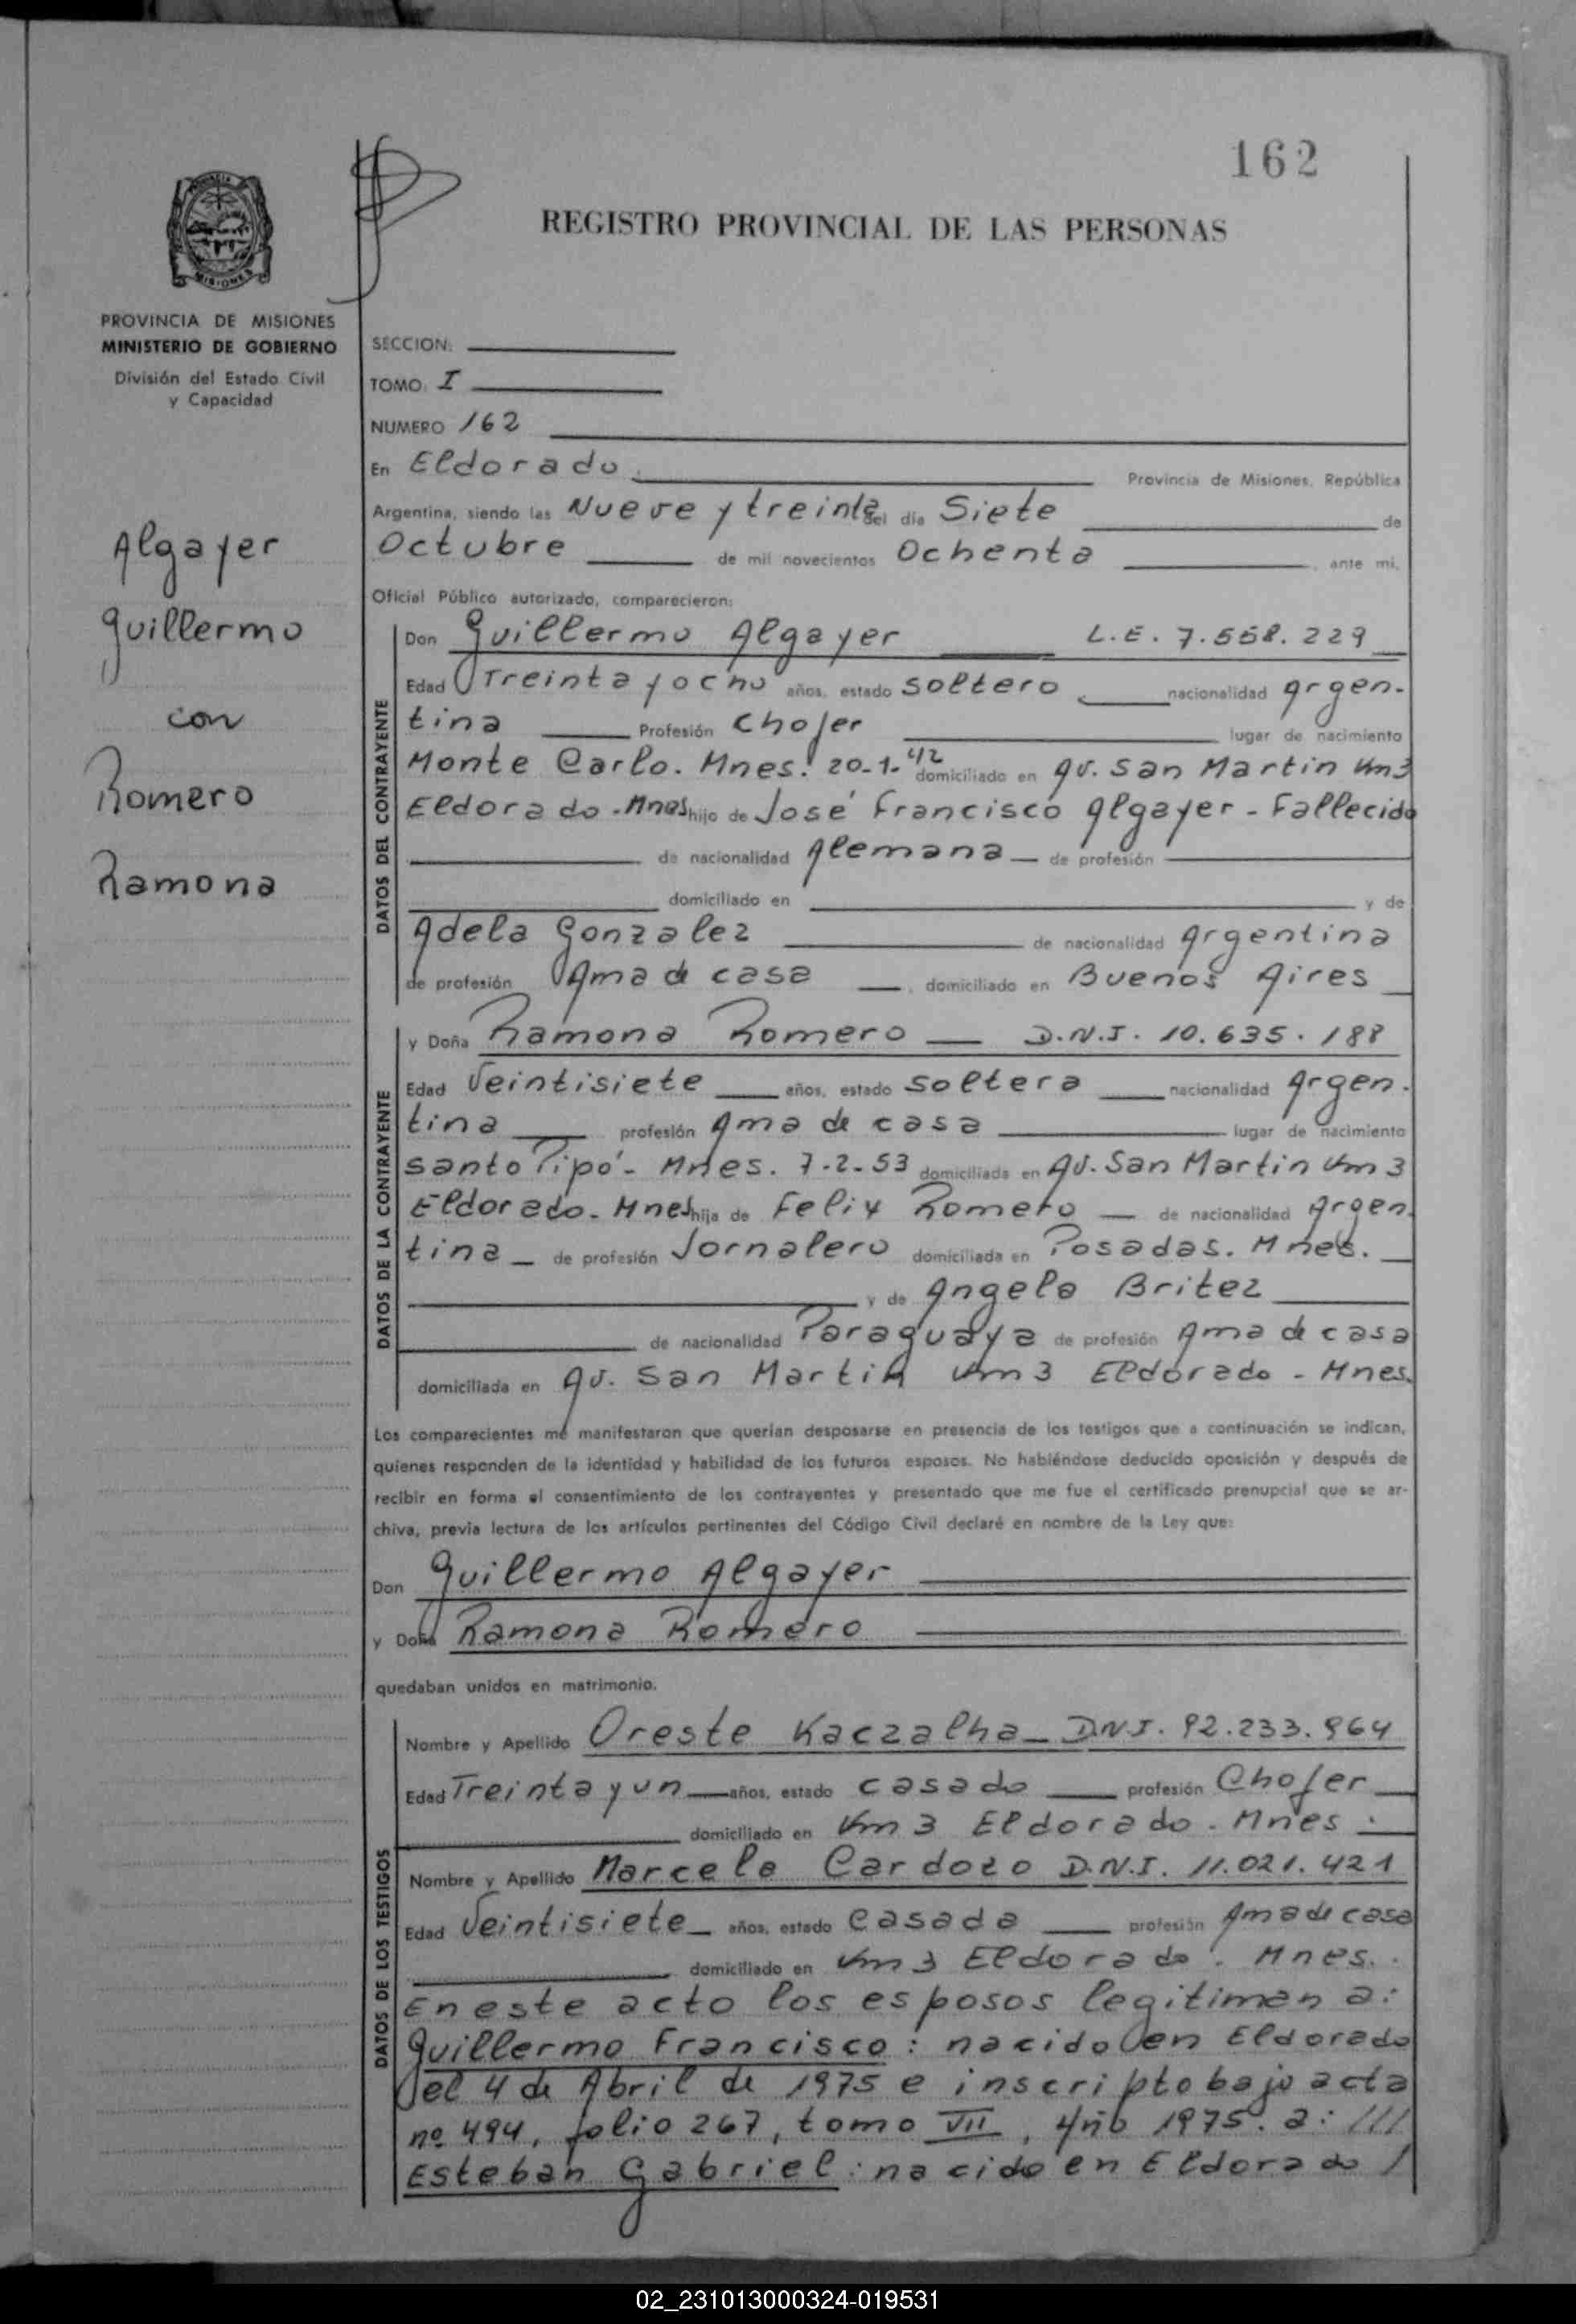 162
REGISTRO PROVINCIAL DE LAS PERSONAS
PROVINCIA DE MISIONES
MINISTERIO DE GOBIERNO
División del Estado Civil
y Capacidad
SECCION:
TOMO: I
NUMERO 162
En Eldorado. Provincia de Misiones, República
Argentina, siendo las Nueve y treinta del día Siete de
Octubre de mil novecientos Ochenta, ante mi,
Oficial Público autorizado, comparecieron:
Algayer
Guillermo
con
Romero
Ramona
DATOS DEL CONTRAYENTE
Don Guillermo Algayer L.E. 7.558.229
Edad Treinta y ocho años, estado soltero nacionalidad Argen-
tina Profesión Chofer lugar de nacimiento
Monte Carlo. Mnes. 20-1-42 domiciliado en Av. San Martin Km 3
Eldorado - Mnes hijo de José Francisco Algayer - Fallecido
de nacionalidad Alemana de profesión
domiciliado en y de
Adela Gonzalez de nacionalidad Argentina
de profesión Ama de casa, domiciliado en Buenos Aires
DATOS DE LA CONTRAYENTE
y Doña Ramona Romero D.N.I. 10.635.188
Edad Veintisiete años, estado soltera nacionalidad Argen-
tina profesión Ama de casa lugar de nacimiento
Santo Pipó - Mnes. 7-2-53 domiciliada en Av. San Martin Km 3
Eldorado - Mnes hija de Felix Romero de nacionalidad Argen
tina de profesión Jornalero domiciliada en Posadas. Mnes.
y de Angela Britez
de nacionalidad Paraguaya de profesión Ama de casa
domiciliada en Av. San Martin Km 3 Eldorado - Mnes.
Los comparecientes me manifestaron que querían desposarse en presencia de los testigos que a continuación se indican,
quienes responden de la identidad y habilidad de los futuros esposos. No habiéndose deducido oposición y después de
recibir en forma el consentimiento de los contrayentes y presentado que me fue el certificado prenupcial que se ar-
chiva, previa lectura de los artículos pertinentes del Código Civil declaré en nombre de la Ley que:
Don Guillermo Algayer
y Doña Ramona Romero
quedaban unidos en matrimonio.
DATOS DE LOS TESTIGOS
Nombre y Apellido Oreste Kaczalha D.N.I. 92.233.964
Edad Treinta y un años, estado casado profesión Chofer
domiciliado en Km 3 Eldorado - Mnes.
Nombre y Apellido Marcela Cardozo D.N.I. 11.021.421
Edad Veintisiete años, estado casada profesión Ama de casa
domiciliado en Km 3 Eldorado. Mnes.
En este acto los esposos legitiman a:
Guillermo Francisco: nacido en Eldorado
el 4 de Abril de 1975 e inscripto bajo acta
nº 494, folio 267, tomo VII, Año 1975. a: ///
Esteban Gabriel: nacido en Eldorado /
02_231013000324-019531